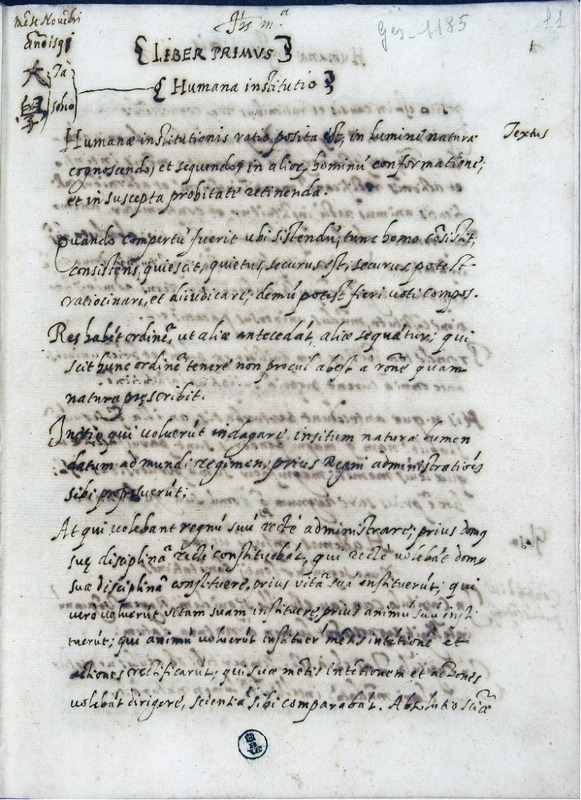 mẽse Novẽbri
Ges-1185
11
LIBER PRIMUS
大 Ta
Humana institutio
學
Humanæ institutionis ratio posita est, in lumine naturæ
Textus
cognoscendo, et sequendo, in aliorũ hominũ conformatione,
et in suscepta probitate retinenda.
Quando compertũ fuerit ubi sistendũ, tunc homo cõsistit,
consistens, quiescit, quietus, securus est, securus potest
ratiocinari, et diiudicare, demũ potest fieri voti compos.
Res habẽt ordinẽ, ut aliæ antecedãt, aliæ sequãtur; qui
scit hunc ordinẽ tenere non procul abest a rõne quam
natura pręscribit.
Initio qui voluerũt indagare insitum naturæ lumen
datum ad mundi regimen, prius Regni administrationẽ
sibi proposuerũt;
At qui volebant regnũ suũ rectè administrare, prius domũ
suę disciplinã rectè constituebãt, qui rectè volebãt domũ
suæ disciplinã constituere, prius vitã suã instituerũt; qui
vero voluerũt vitam suam instituere, prius animũ suũ insti
tuerũt; qui animũ voluerũt instituere mẽtis intẽtionẽ et
actiones rectificarũt, qui suæ mẽtis intẽtionem et actiones
volebãt dirigere, scientiã sibi comparabãt. Absolutio sciẽ